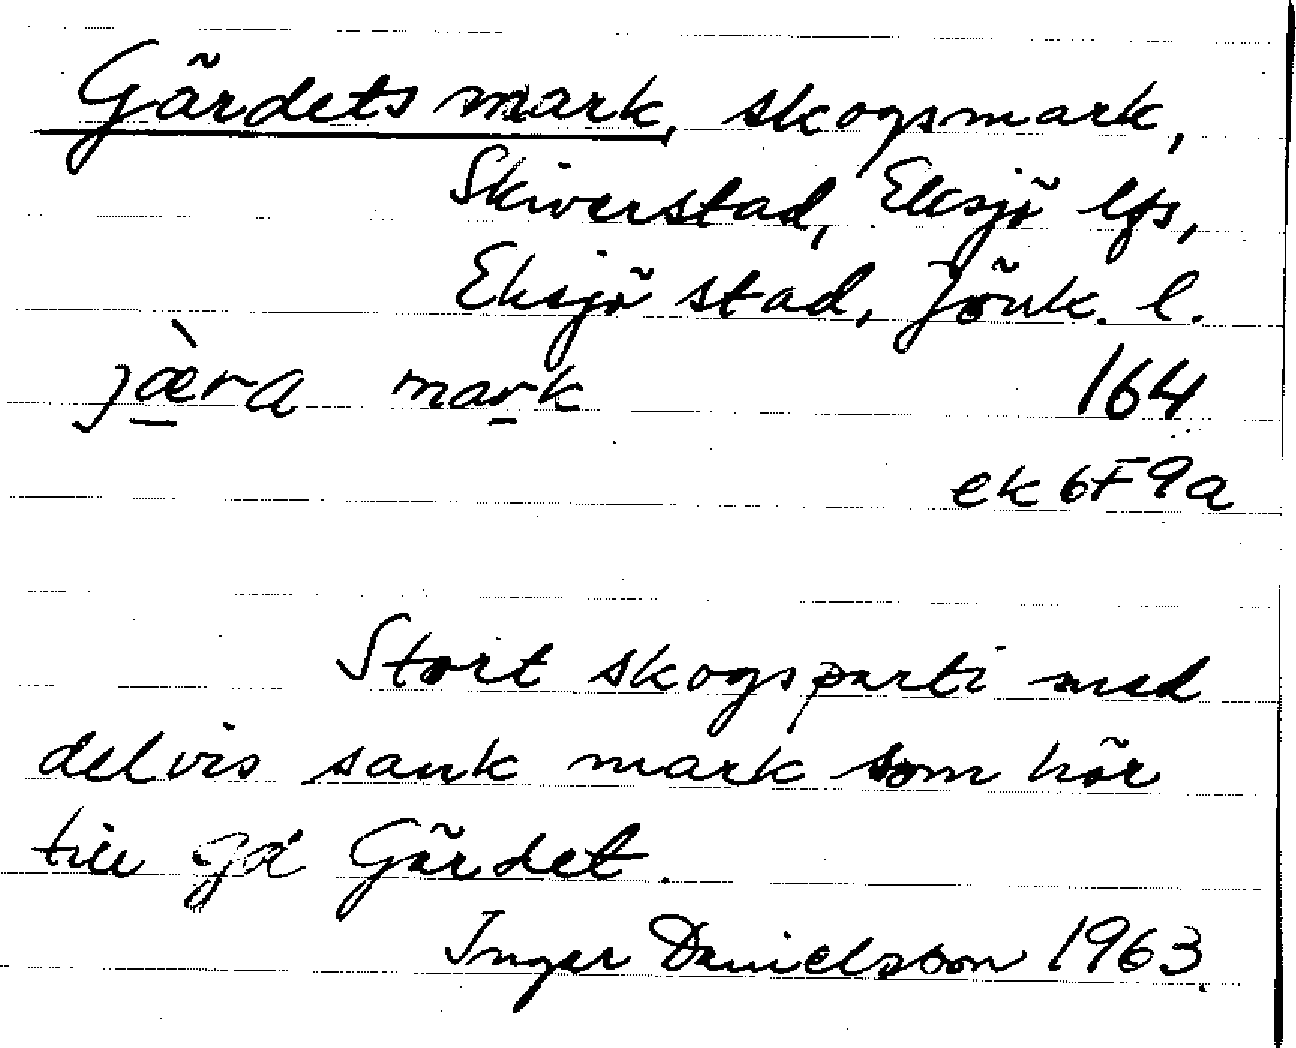 Gärdets mark, skogsmark,
Skiverstad, Eksjö lfs,
Eksjö stad, Jönk. l.
jæ̀ra mark 164
ek 6F9a
Stort skogsparti med
delvis sank mark som hör
till gd Gärdet.
Inger Danielsson 1963.